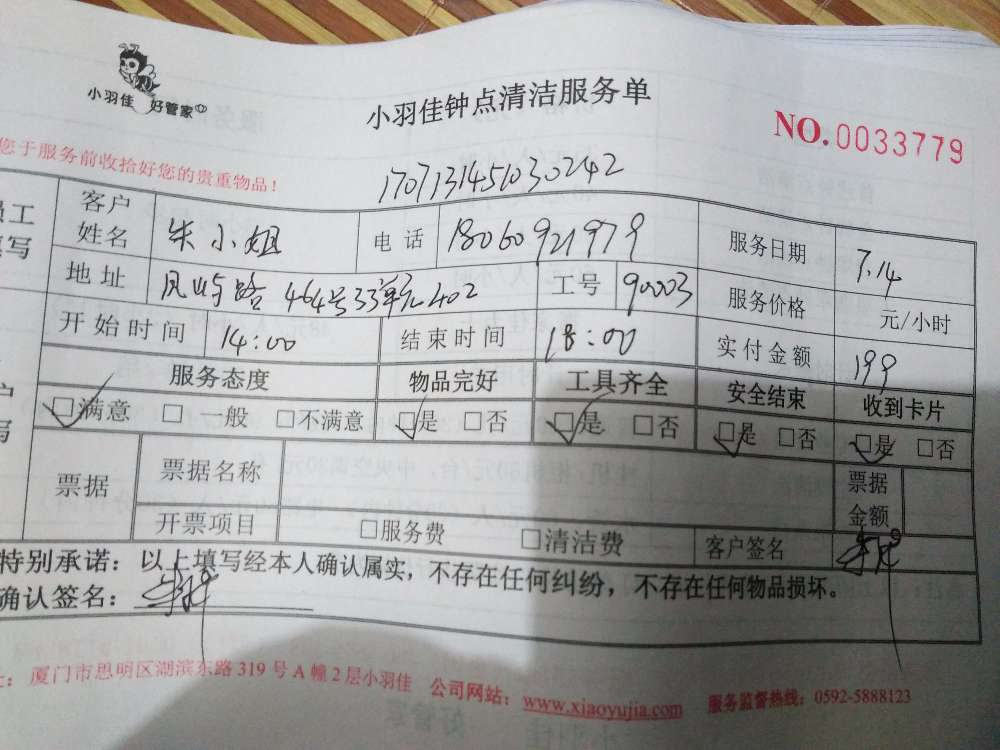 小羽佳 好管家
小羽佳钟点清洁服务单
NO.0033779
您于服务前收拾好您的贵重物品！
1707131451030242
员工
填写
客户
姓名 朱小姐 电话 18060921979 服务日期 7.14
地址 凤屿路464号33单元402 工号 90003 服务价格 元/小时
开始时间 14:00 结束时间 18:00 实付金额 199
服务态度 物品完好 工具齐全 安全结束 收到卡片
☑满意 □一般 □不满意 ☑是 □否 ☑是 □否 ☑是 □否 ☑是 □否
票据 票据名称 票据
金额
开票项目 □服务费 □清洁费 客户签名
特别承诺：以上填写经本人确认属实，不存在任何纠纷，不存在任何物品损坏。
确认签名：
厦门市思明区湖滨东路319号A幢2层小羽佳 公司网站：www.xiaoyujia.com 服务监督热线：0592-5888123